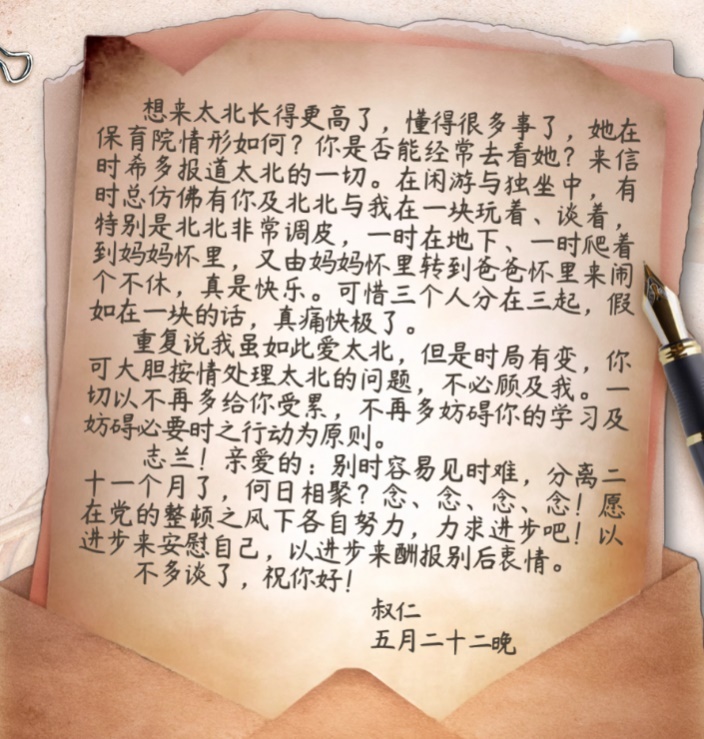 想来太北长得更高了，懂得很多事了，她在
保育院情形如何？你是否能经常去看她？来信
时希多报道太北的一切。在闲游与独坐中，有
时总仿佛有你及北北与我在一块玩着、谈着，
特别是北北非常调皮，一时在地下、一时爬着
到妈妈怀里，又由妈妈怀里转到爸爸怀里来闹
个不休，真是快乐。可惜三个人分在三起，假
如在一块的话，真痛快极了。
重复说我虽如此爱太北，但是时局有变，你
可大胆按情处理太北的问题，不必顾及我。一
切以不再多给你受累，不再多妨碍你的学习及
妨碍必要时之行动为原则。
志兰！亲爱的：别时容易见时难，分离二
十一个月了，何日相聚？念、念、念、念！愿
在党的整顿之风下各自努力，力求进步吧！以
进步来安慰自己，以进步来酬报别后衷情。
不多谈了，祝你好！
叔仁
五月二十二晚